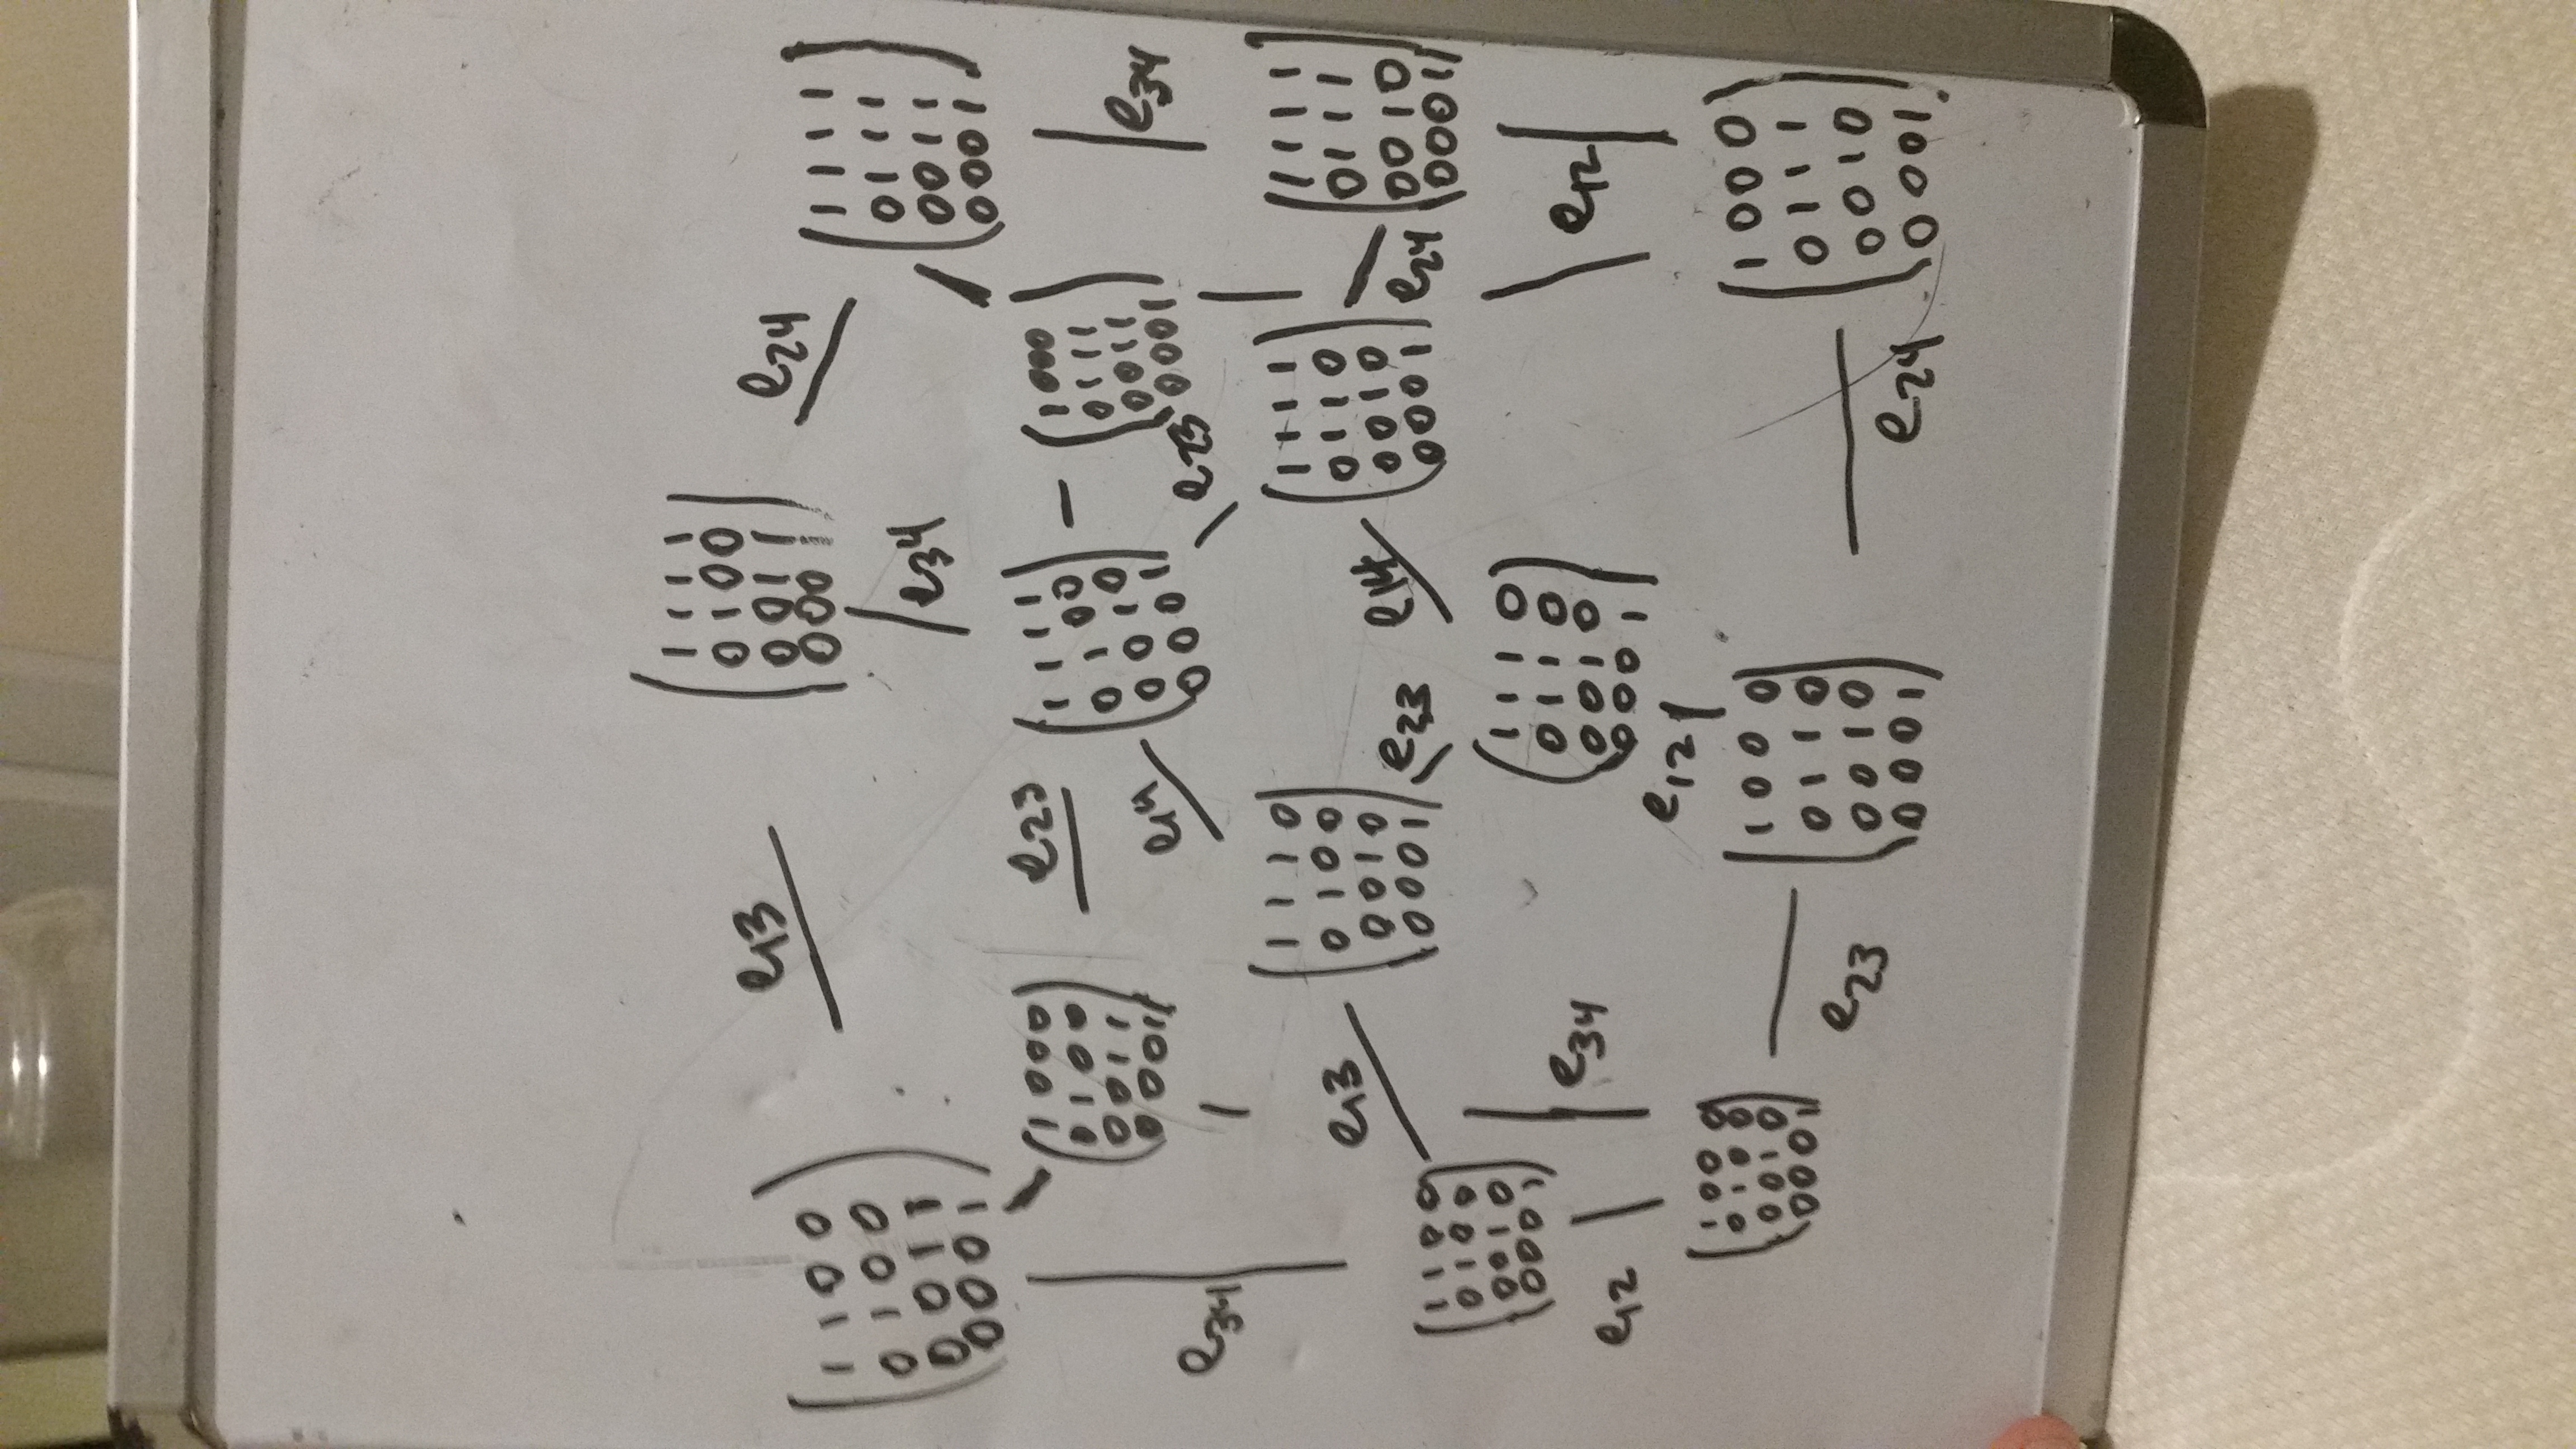 1 1 1 1
0 1 0 0
0 0 1 1
0 0 0 1
e13
e24
1 1 0 0
0 1 0 0
0 0 1 1
0 0 0 1
1 1 1 1
0 1 1 1
0 0 1 1
0 0 0 1
e34
1 0 0 0
0 1 0 0
0 0 1 1
0 0 0 1
e23
1 1 1 1
0 1 0 0
0 0 1 0
0 0 0 1
1 0 0 0
0 1 1 1
0 0 1 1
0 0 0 1
e34
e14
e23
e34
1 1 1 0
0 1 0 0
0 0 1 0
0 0 0 1
1 1 1 1
0 1 1 0
0 0 1 0
0 0 0 1
1 1 1 1
0 1 1 1
0 0 1 0
0 0 0 1
e13
e23
e14
e24
1 1 0 0
0 1 0 0
0 0 1 0
0 0 0 1
1 1 1 0
0 1 1 0
0 0 1 0
0 0 0 1
e12
e34
e12
e12
1 0 0 0
0 1 0 0
0 0 1 0
0 0 0 1
1 0 0 0
0 1 1 0
0 0 1 0
0 0 0 1
1 0 0 0
0 1 1 1
0 0 1 0
0 0 0 1
e23
e24